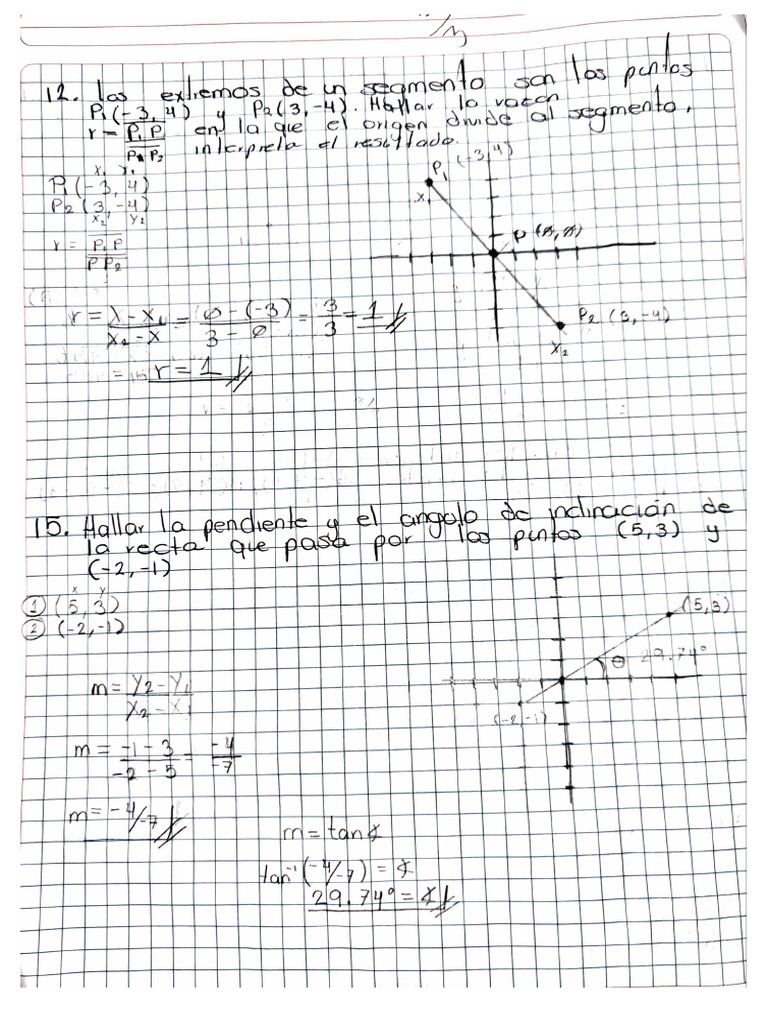 12. Los extremos de un segmento son los puntos
P₁(-3, 4) y P₂(3, -4). Hallar la razon
r = P₁P / PP₂ en la que el origen divide al segmento,
interpreta el resultado.
x₁ y₁
P₁(-3, 4)
P₂(3, -4)
x₂ y₂
r = P₁P / PP₂
P₁ (-3, 4)
x₁
P (0, 0)
P₂ (3, -4)
x₂
r = x - x₁ / x₂ - x = 0 - (-3) / 3 - 0 = 3/3 = 1
= r = 1
15. Hallar la pendiente y el angulo de inclinación de
la recta que pasa por los puntos (5,3) y
(-2,-1)
x y
① (5, 3)
② (-2,-1)
(5,3)
θ 29.74°
(-2,-1)
m = y₂ - y₁ / x₂ - x₁
m = -1 - 3 / -2 - 5 = -4 / -7
m = -4/-7
m = tan∡
tan⁻¹(-4/-7) = ∡
29.74° = ∡